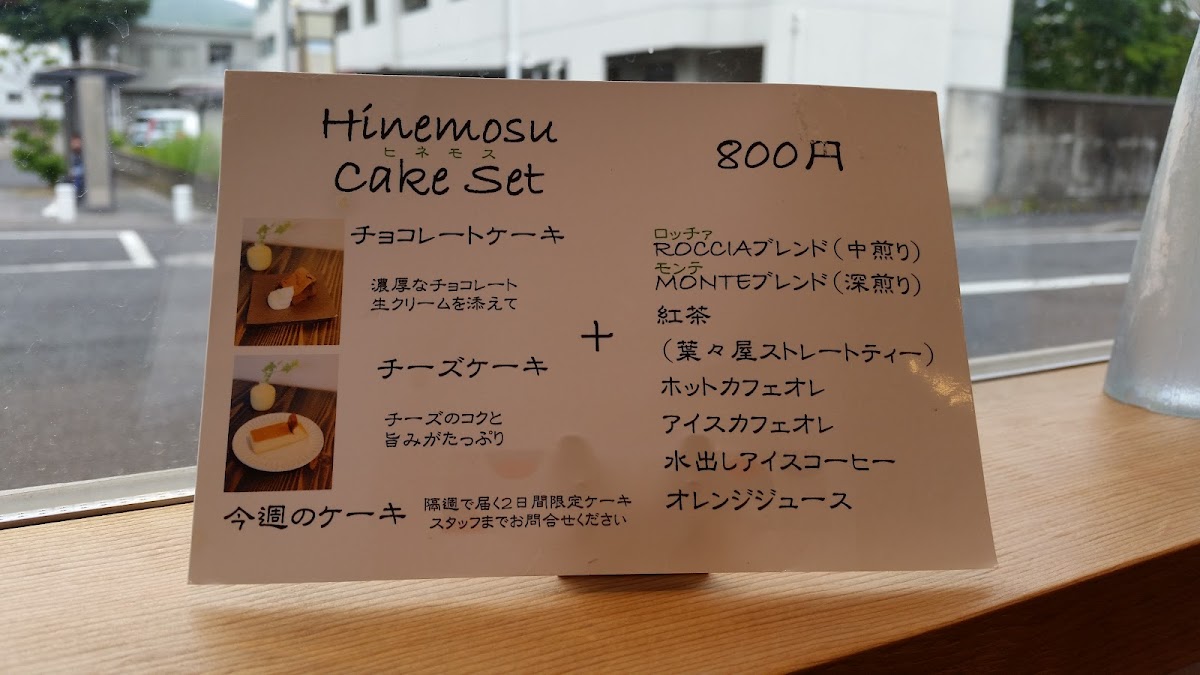 Hinemosu
ヒネモス
Cake Set
800円
チョコレートケーキ
濃厚なチョコレート
生クリームを添えて
チーズケーキ
チーズのコクと
旨みがたっぷり
今週のケーキ
隔週で届く2日間限定ケーキ
スタッフまでお問合せください
+
ロッチァ
ROCCIAブレンド(中煎り)
モンテ
MONTEブレンド(深煎り)
紅茶
(葉々屋ストレートティー)
ホットカフェオレ
アイスカフェオレ
水出しアイスコーヒー
オレンジジュース